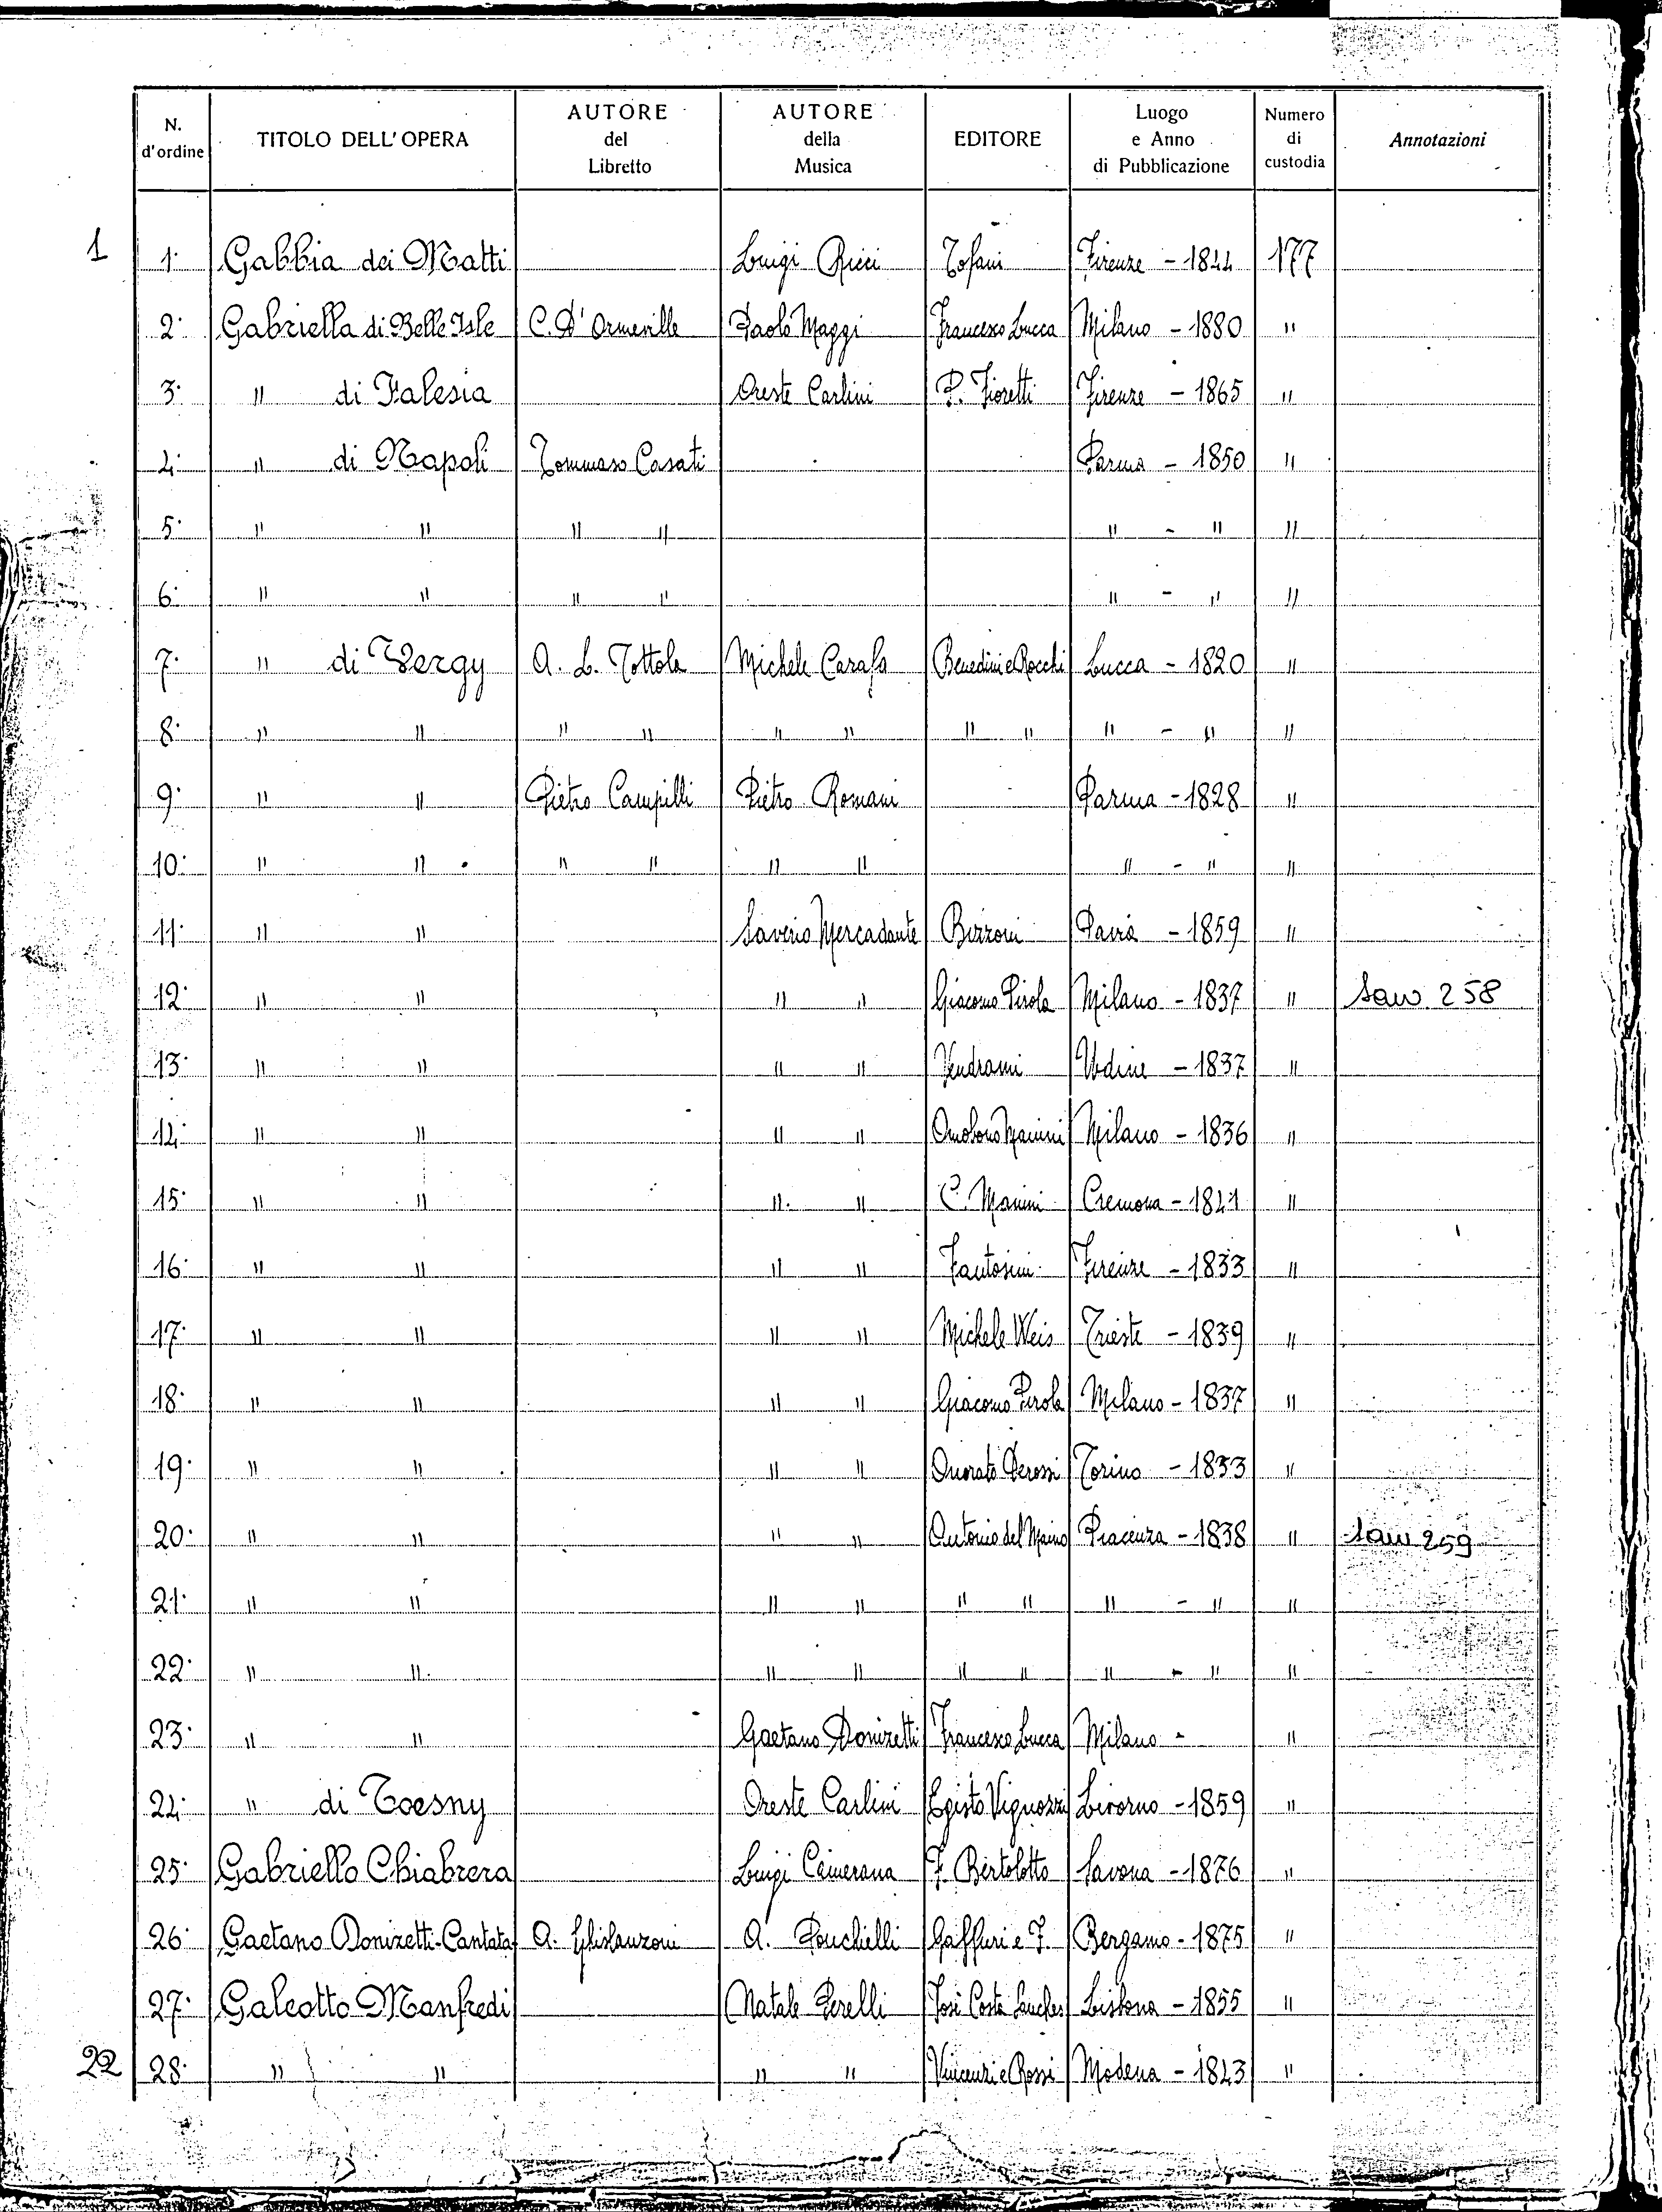 N. d'ordine | TITOLO DELL' OPERA | AUTORE del Libretto | AUTORE della Musica | EDITORE | Luogo e Anno di Pubblicazione | Numero di custodia | Annotazioni
1 1· Gabbia dei Matti Luigi Ricci Tofani Firenze - 1844 177
2· Gabriella di Belle Isle C. D'Ormeville Paolo Maggi Francesco Lucca Milano - 1880 "
3· " di Falesia Oreste Carlini P. Fioretti Firenze - 1865 "
4· " di Napoli Tommaso Casati Parma - 1850 "
5· " " " " " - " "
6· " " " " " - " "
7· " di Vergy A. L. Tottola Michele Carafa Benedini e Rocchi Lucca - 1820 "
8· " " " " " " " " " - " "
9· " " Pietro Campilli Pietro Romani Parma - 1828 "
10· " " " " " " " - " "
11· " " Saverio Mercadante Bizzoni Pavia - 1859 "
12· " " " " Giacomo Pirola Milano - 1837 " Saw. 258
13· " " " " Vendrami Udine - 1837 "
14· " " " " Omobono Manini Milano - 1836 "
15· " " " " C. Manini Cremona - 1841 "
16· " " " " Fantosini Firenze - 1833 "
17· " " " " Michele Weis Trieste - 1839 "
18· " " " " Giacomo Pirola Milano - 1837 "
19· " " " " Onorato Derossi Torino - 1833 "
20· " " " " Antonio del Maino Piacenza - 1838 " Saw 259
21· " " " " " " " - " "
22· " " " " " " " - " "
23· " " Gaetano Donizetti Francesco Lucca Milano - "
24· " di Toesny Oreste Carlini Egisto Vignozzi Livorno - 1859 "
25· Gabriello Chiabrera Luigi Camerana F. Bertolotto Savona - 1876 "
26· Gaetano Donizetti-Cantata A. Ghislanzoni A. Ponchielli Gaffuri e F. Bergamo - 1875 "
27· Galeotto Manfredi Natale Perelli José Costa Sanches Lisbona - 1855 "
22 28· " " " " Vincenzi e Rossi Modena - 1843 "